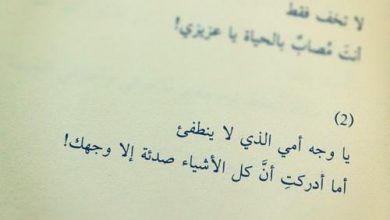 لا تخف فقط
أنتَ مُصابٌ بالحياة يا عزيزي!
(2)
يا وجه أمي الذي لا ينطفئ
أما أدركتِ أنَّ كل الأشياء صدئة إلا وجهك!